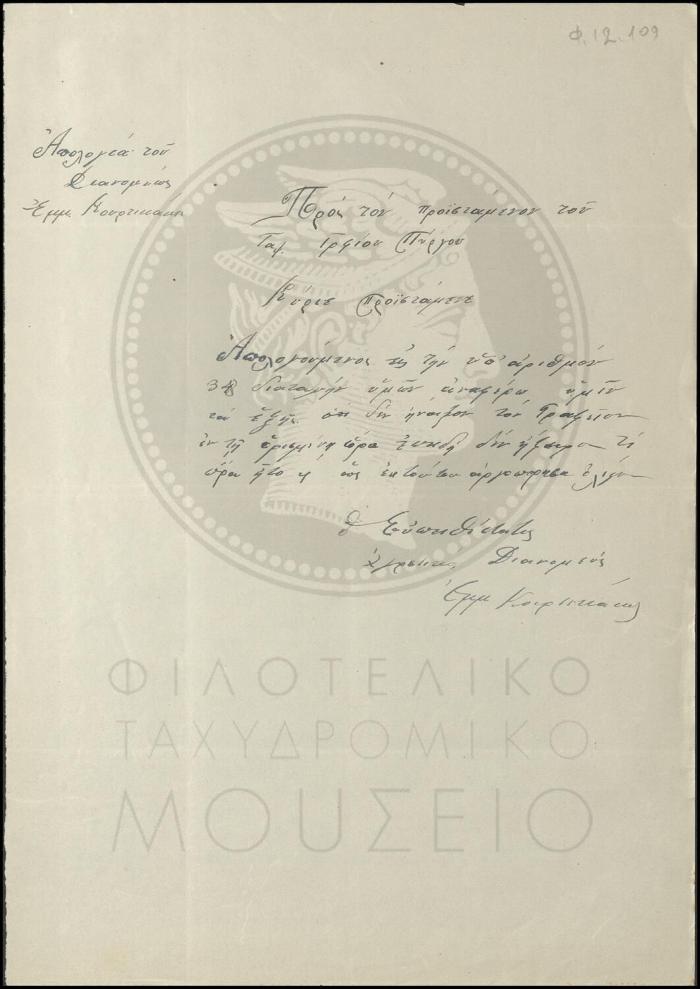 Φ.12.109
Ἀπολογία τοῦ
Διανομέως
Ἐμμ. Κουρτικάκη
Πρός τόν προϊστάμενον τοῦ
Ταχ. Γρφίου Πύργου
Κύριε Προϊστάμενε
Ἀπολογούμενος εἰς τήν ὑπ' ἀριθμόν
38 διαταγήν ὑμῶν ἀναφέρω ὑμῖν
τά ἑξῆς ὅτι δέν ἤνοιξον τόν Γραφεῖον
ἐν τῇ ὁρισμένῃ ὥρα ἐπειδή δέν ἤξευρα τί
ὥρα ἦτο ὡς ἐκ τούτου ἀργοπόρησα ὀλίγον
Ὁ Εὐπειθέστατος
Διανομεύς
Ἐμμ Κουρτικάκης
ΦΙΛΟΤΕΛΙΚΟ
ΤΑΧΥΔΡΟΜΙΚΟ
ΜΟΥΣΕΙΟ